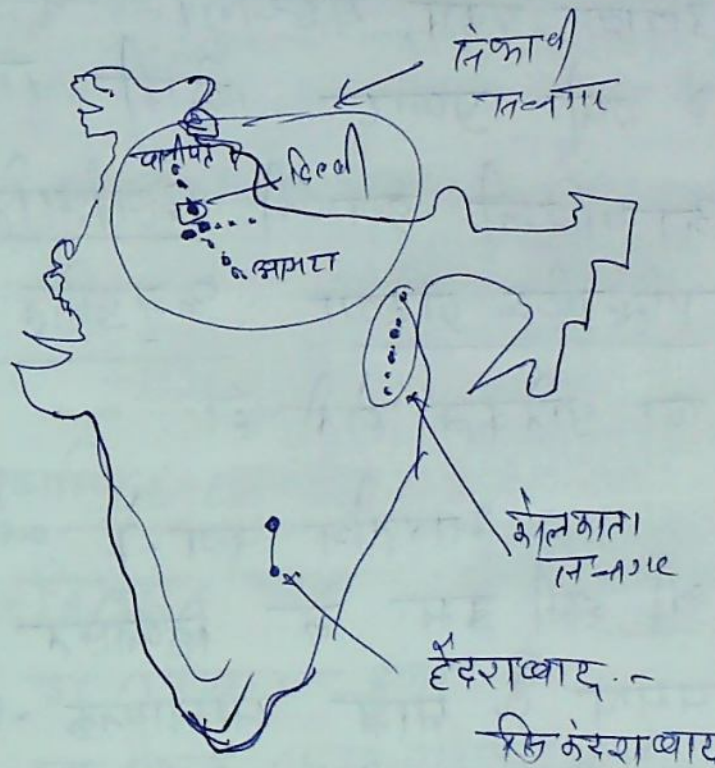 सन्नगर
पानीपत
दिल्ली
आगरा
कोलकाता
सन्नगर
हैदराब्बाद -
सिकंदराब्बाद